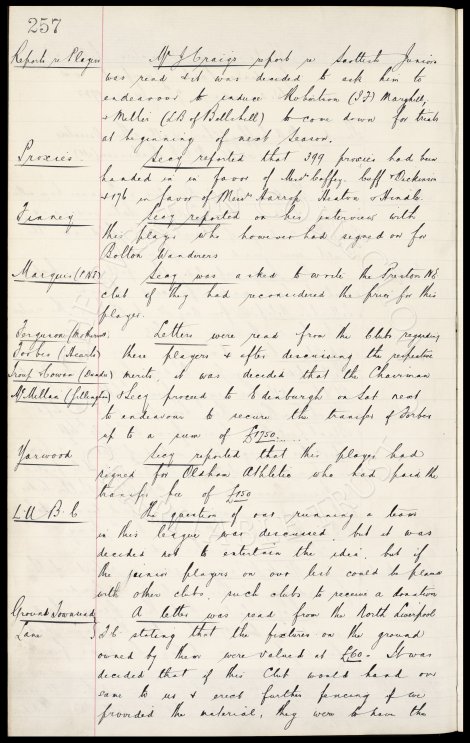 257
Reports re Players Mr J Craigs report re Scottish Juniors
was read & it was decided to ask him to
endeavour to induce Robertson (I F) Maryhill,
& Miller (L B of Bellshill) to come down for trials
at beginning of next season.
Proxies Secy reported that 399 proxies had been
handed in in favor of Messrs Coffey, Cuff & Dickinson
& 176 in favor of Messrs Harrop, Heaton & Hindle.
Tinney Secy reported on his interview with
this player who however had signed on for
Bolton Wanderers
Marquis (P N E) Secy was asked to write the Preston N E
club if they had reconsidered the price for this
player.
Ferguson Letters were read from the Clubs regarding
Forbes (Hearts) these players & after discussing the respective
Troup & Cowan (Dundee) merits, it was decided that the Chairman
McMillan (Gillingham) & Secy proceed to Edinburgh on Sat next
to endeavour to secure the transfer of Forbes
up to a sum of £1750.....
Yarwood Secy reported that this player had
signed for Oldham Athletic who had paid the
transfer fee of
L U B C The question of our running a team
in this league was discussed, but it was
decided not to entertain the idea, but if
the junior players on our list could be placed
with other clubs, such clubs to receive a donation
Ground Townsend A letter was read from the North Liverpool
Lane } F C stating that the fixtures on the ground
owned by them were valued at £60. It was
decided that if this Club would hand over
same to us & erect further fencing if we
provided the material, they were to have the